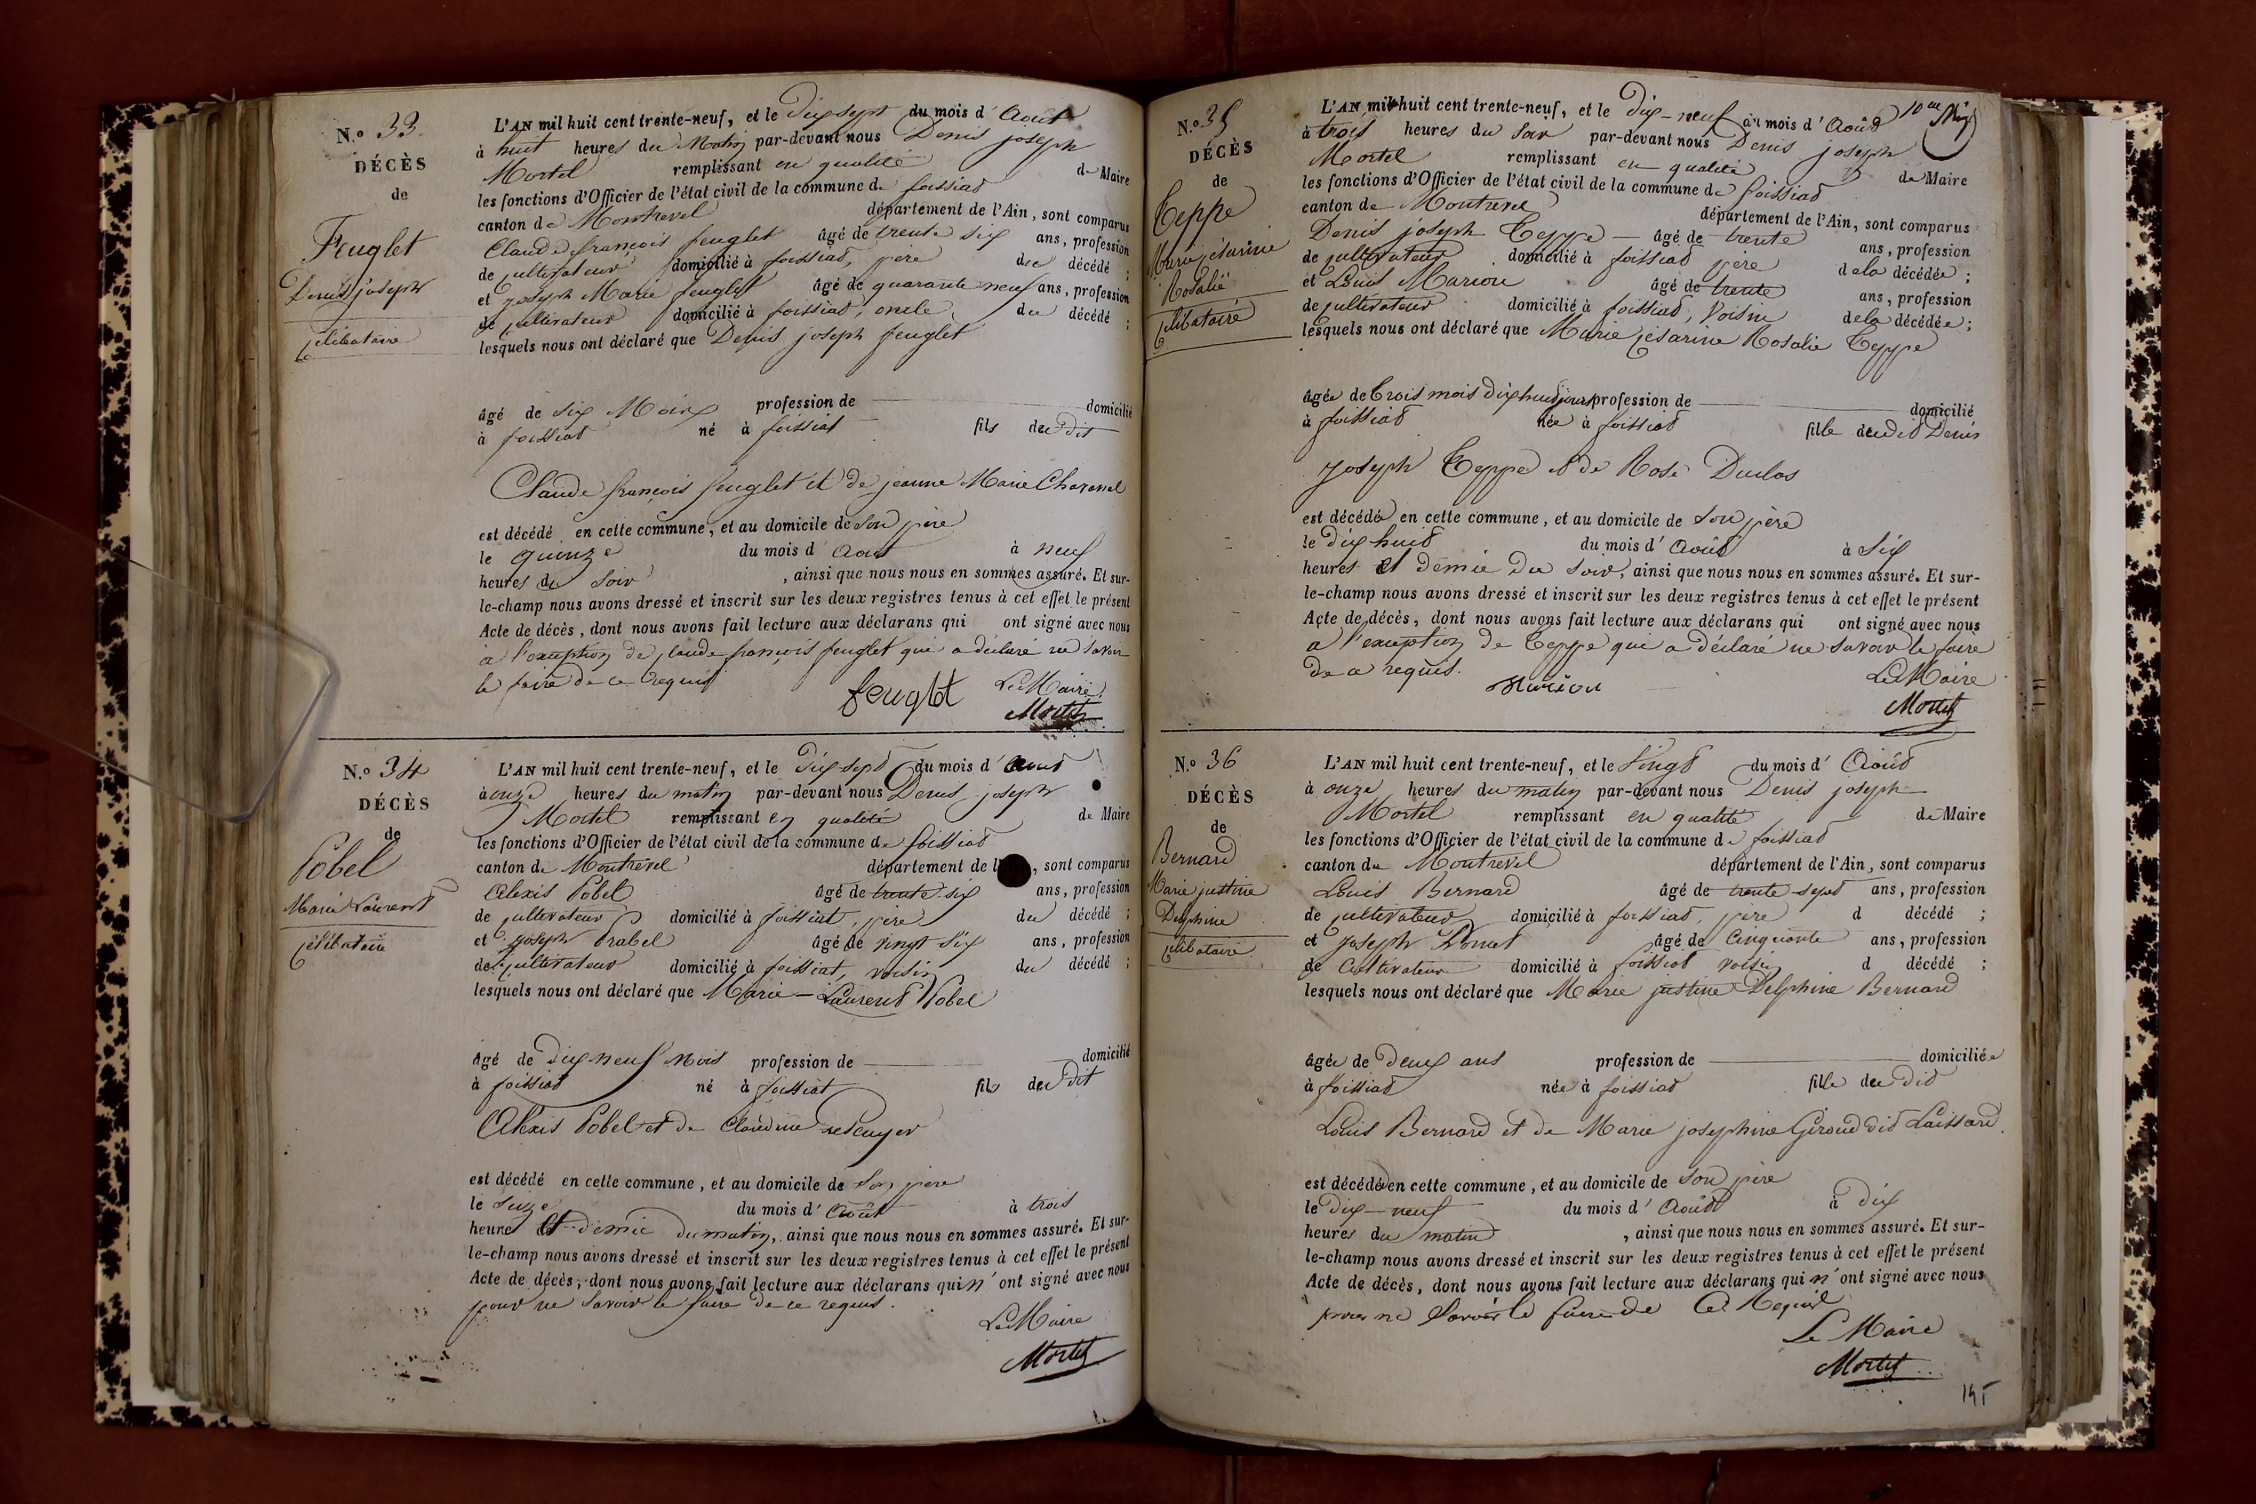 N.o 33
DÉCÈS
de
Feuglet
Denis joseph
célibataire
L'AN mil huit cent trente-neuf, et le dix sept du mois d'Août
à huit heures du Matin par-devant nous Denis joseph
Mortel remplissant en qualité de Maire
les fonctions d'Officier de l'état civil de la commune de foissiat
canton de Montrevel département de l'Ain, sont comparus
Claude françois feuglet âgé de trente six ans, profession
de cultivateur domicilié à foissiat, père du décédé ;
et joseph Marie feuglet âgé de quarante neuf ans, profession
de cultivateur domicilié à foissiat, oncle du décédé ;
lesquels nous ont déclaré que Denis joseph feuglet
âgé de six Mois profession de domicilié
à foissiat né à foissiat fils du dit
Claude françois feuglet et de jeanne Marie
est décédé en cette commune, et au domicile de son père
le quinze du mois d'Aout à neuf
heures du soir, ainsi que nous nous en sommes assuré. Et sur-
le-champ nous avons dressé et inscrit sur les deux registres tenus à cet effet le présent
Acte de décès, dont nous avons fait lecture aux déclarans qui ont signé avec nous
a l'exception de claude françois feuglet qui a déclaré ne savoir
le faire de ce requis
feuglet Le Maire
Mortel
N.o 34
DÉCÈS
de
Pobel
Marie Laurent
célibataire
L'AN mil huit cent trente-neuf, et le dix sept du mois d'Aout
à onze heures du matin par-devant nous Denis joseph
Mortel remplissant en qualité de Maire
les fonctions d'Officier de l'état civil de la commune de foissiat
canton de Montrevel département de l', sont comparus
Alexis Pobel âgé de trente six ans, profession
de cultivateur domicilié à foissiat, père du décédé ;
et joseph âgé de vingt six ans, profession
de cultivateur domicilié à foissiat, voisin du décédé ;
lesquels nous ont déclaré que Marie-Laurent Pobel
âgé de dix neuf Mois profession de domicilié
à foissiat né à foissiat fils du dit
Alexis Pobel et de Claudine
est décédé en cette commune, et au domicile de son père
le seize du mois d'Août à trois
heures et demie du matin, ainsi que nous nous en sommes assuré. Et sur-
le-champ nous avons dressé et inscrit sur les deux registres tenus à cet effet le présent
Acte de décès, dont nous avons fait lecture aux déclarans qui n'ont signé avec nous
pour ne savoir le faire de ce requis.
Le Maire
Mortel
N.o 35
DÉCÈS
de
Teppe
Marie césarine
Rosalie
célibataire
L'AN mil huit cent trente-neuf, et le dix-neuf du mois d'Août
à trois heures du soir par-devant nous Denis joseph
Mortel remplissant en qualité de Maire
les fonctions d'Officier de l'état civil de la commune de foissiat
canton de Montrevel département de l'Ain, sont comparus
Denis joseph Teppe âgé de trente ans, profession
de cultivateur domicilié à foissiat père de la décédée ;
et Louis Marion âgé de trente ans, profession
de cultivateur domicilié à foissiat, voisin de la décédée ;
lesquels nous ont déclaré que Marie césarine Rosalie Teppe
âgée de trois mois dix huit jours profession de domicilié
à foissiat née à foissiat fille du dit Denis
joseph Teppe et de Rose Duclos
est décédée en cette commune, et au domicile de son père
le dix huit du mois d'Août à six
heures et demie du soir, ainsi que nous nous en sommes assuré. Et sur-
le-champ nous avons dressé et inscrit sur les deux registres tenus à cet effet le présent
Acte de décès, dont nous avons fait lecture aux déclarans qui ont signé avec nous
a l'exception de Teppe qui a déclaré ne savoir le faire
de ce requis.
Marion Le Maire
Mortel
N.o 36
DÉCÈS
de
Bernard
Marie justine
Delphine
célibataire
L'AN mil huit cent trente-neuf, et le Vingt du mois d'Août
à onze heures du matin par-devant nous Denis joseph
Mortel remplissant en qualité de Maire
les fonctions d'Officier de l'état civil de la commune de foissiat
canton de Montrevel département de l'Ain, sont comparus
Louis Bernard âgé de trente-sept ans, profession
de cultivateur domicilié à foissiat, père d décédé ;
et joseph âgé de cinquante ans, profession
de Cultivateur domicilié à foissiat voisin d décédé ;
lesquels nous ont déclaré que Marie justine Delphine Bernard
âgée de deux ans profession de domiciliée
à foissiat née à foissiat fille du dit
Louis Bernard et de Marie josephine Giroud dit Laissard
est décédée en cette commune, et au domicile de son père
le dix-neuf du mois d'Août à dix
heures du matin, ainsi que nous nous en sommes assuré. Et sur-
le-champ nous avons dressé et inscrit sur les deux registres tenus à cet effet le présent
Acte de décès, dont nous avons fait lecture aux déclarans qui n'ont signé avec nous
pour ne savoir le faire de ce Requis
Le Maire
Mortel